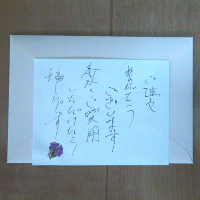 ご縁
ありがとう
ございます!
末永くご愛用
いただけたら
嬉しいです!